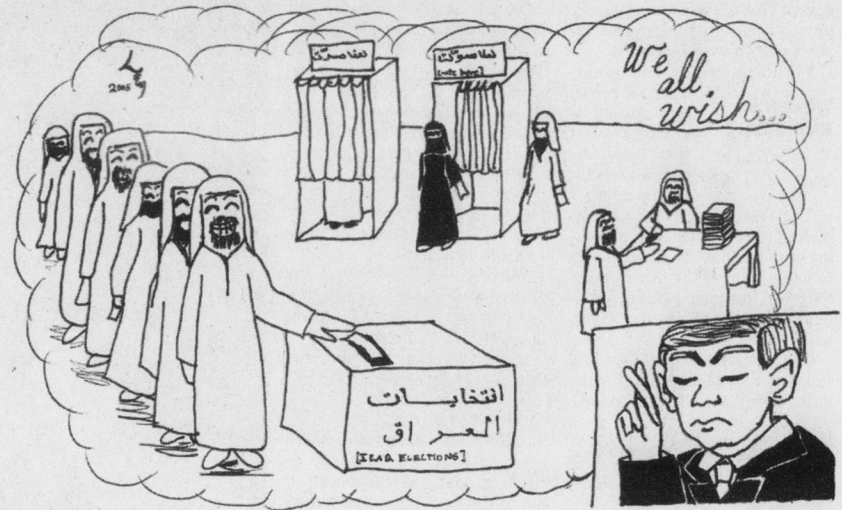 2005
[vote here]
We
all
wish...
انتخابات
العراق
[IRAQ ELECTIONS]